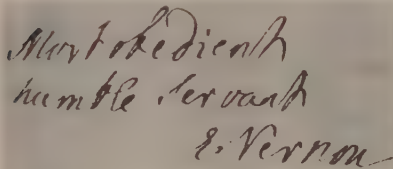 Most obedient
humble Servant
E. Vernon